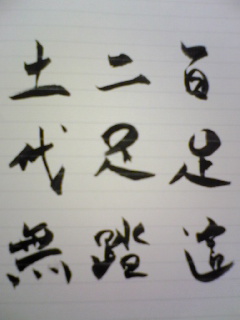 百足這
二足踏
土代無